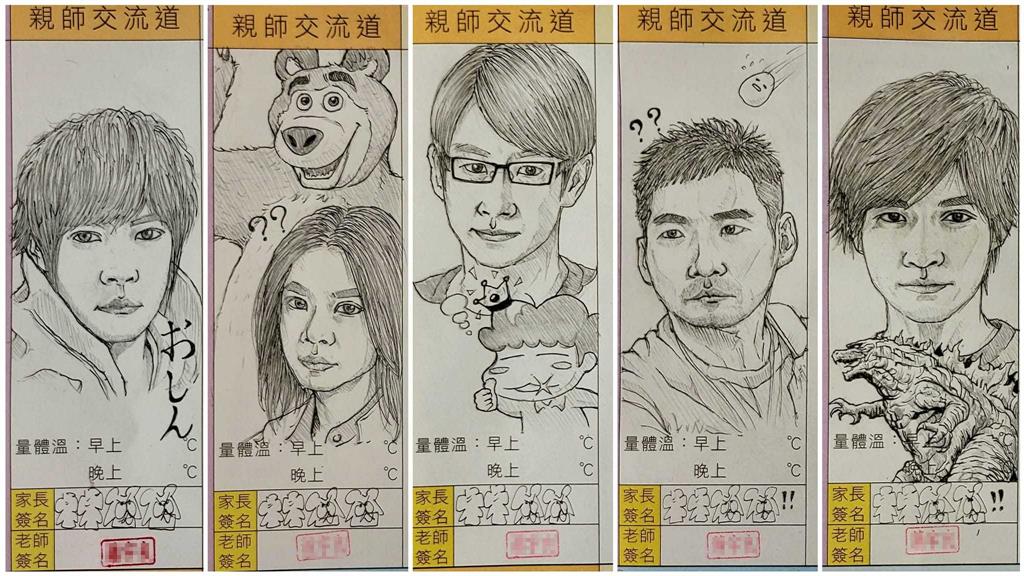 親師交流道
おしん
量體溫：早上 ℃
晚上 ℃
家長
簽名
老師
簽名
親師交流道
??
量體溫：早上 ℃
晚上 ℃
家長
簽名
老師
簽名
親師交流道
量體溫：早上 ℃
晚上 ℃
家長
簽名
老師
簽名
親師交流道
??
量體溫：早上 ℃
晚上 ℃
家長
簽名 !!
老師
簽名
親師交流道
量體溫：早上 ℃
晚上 ℃
家長
簽名 !!
老師
簽名